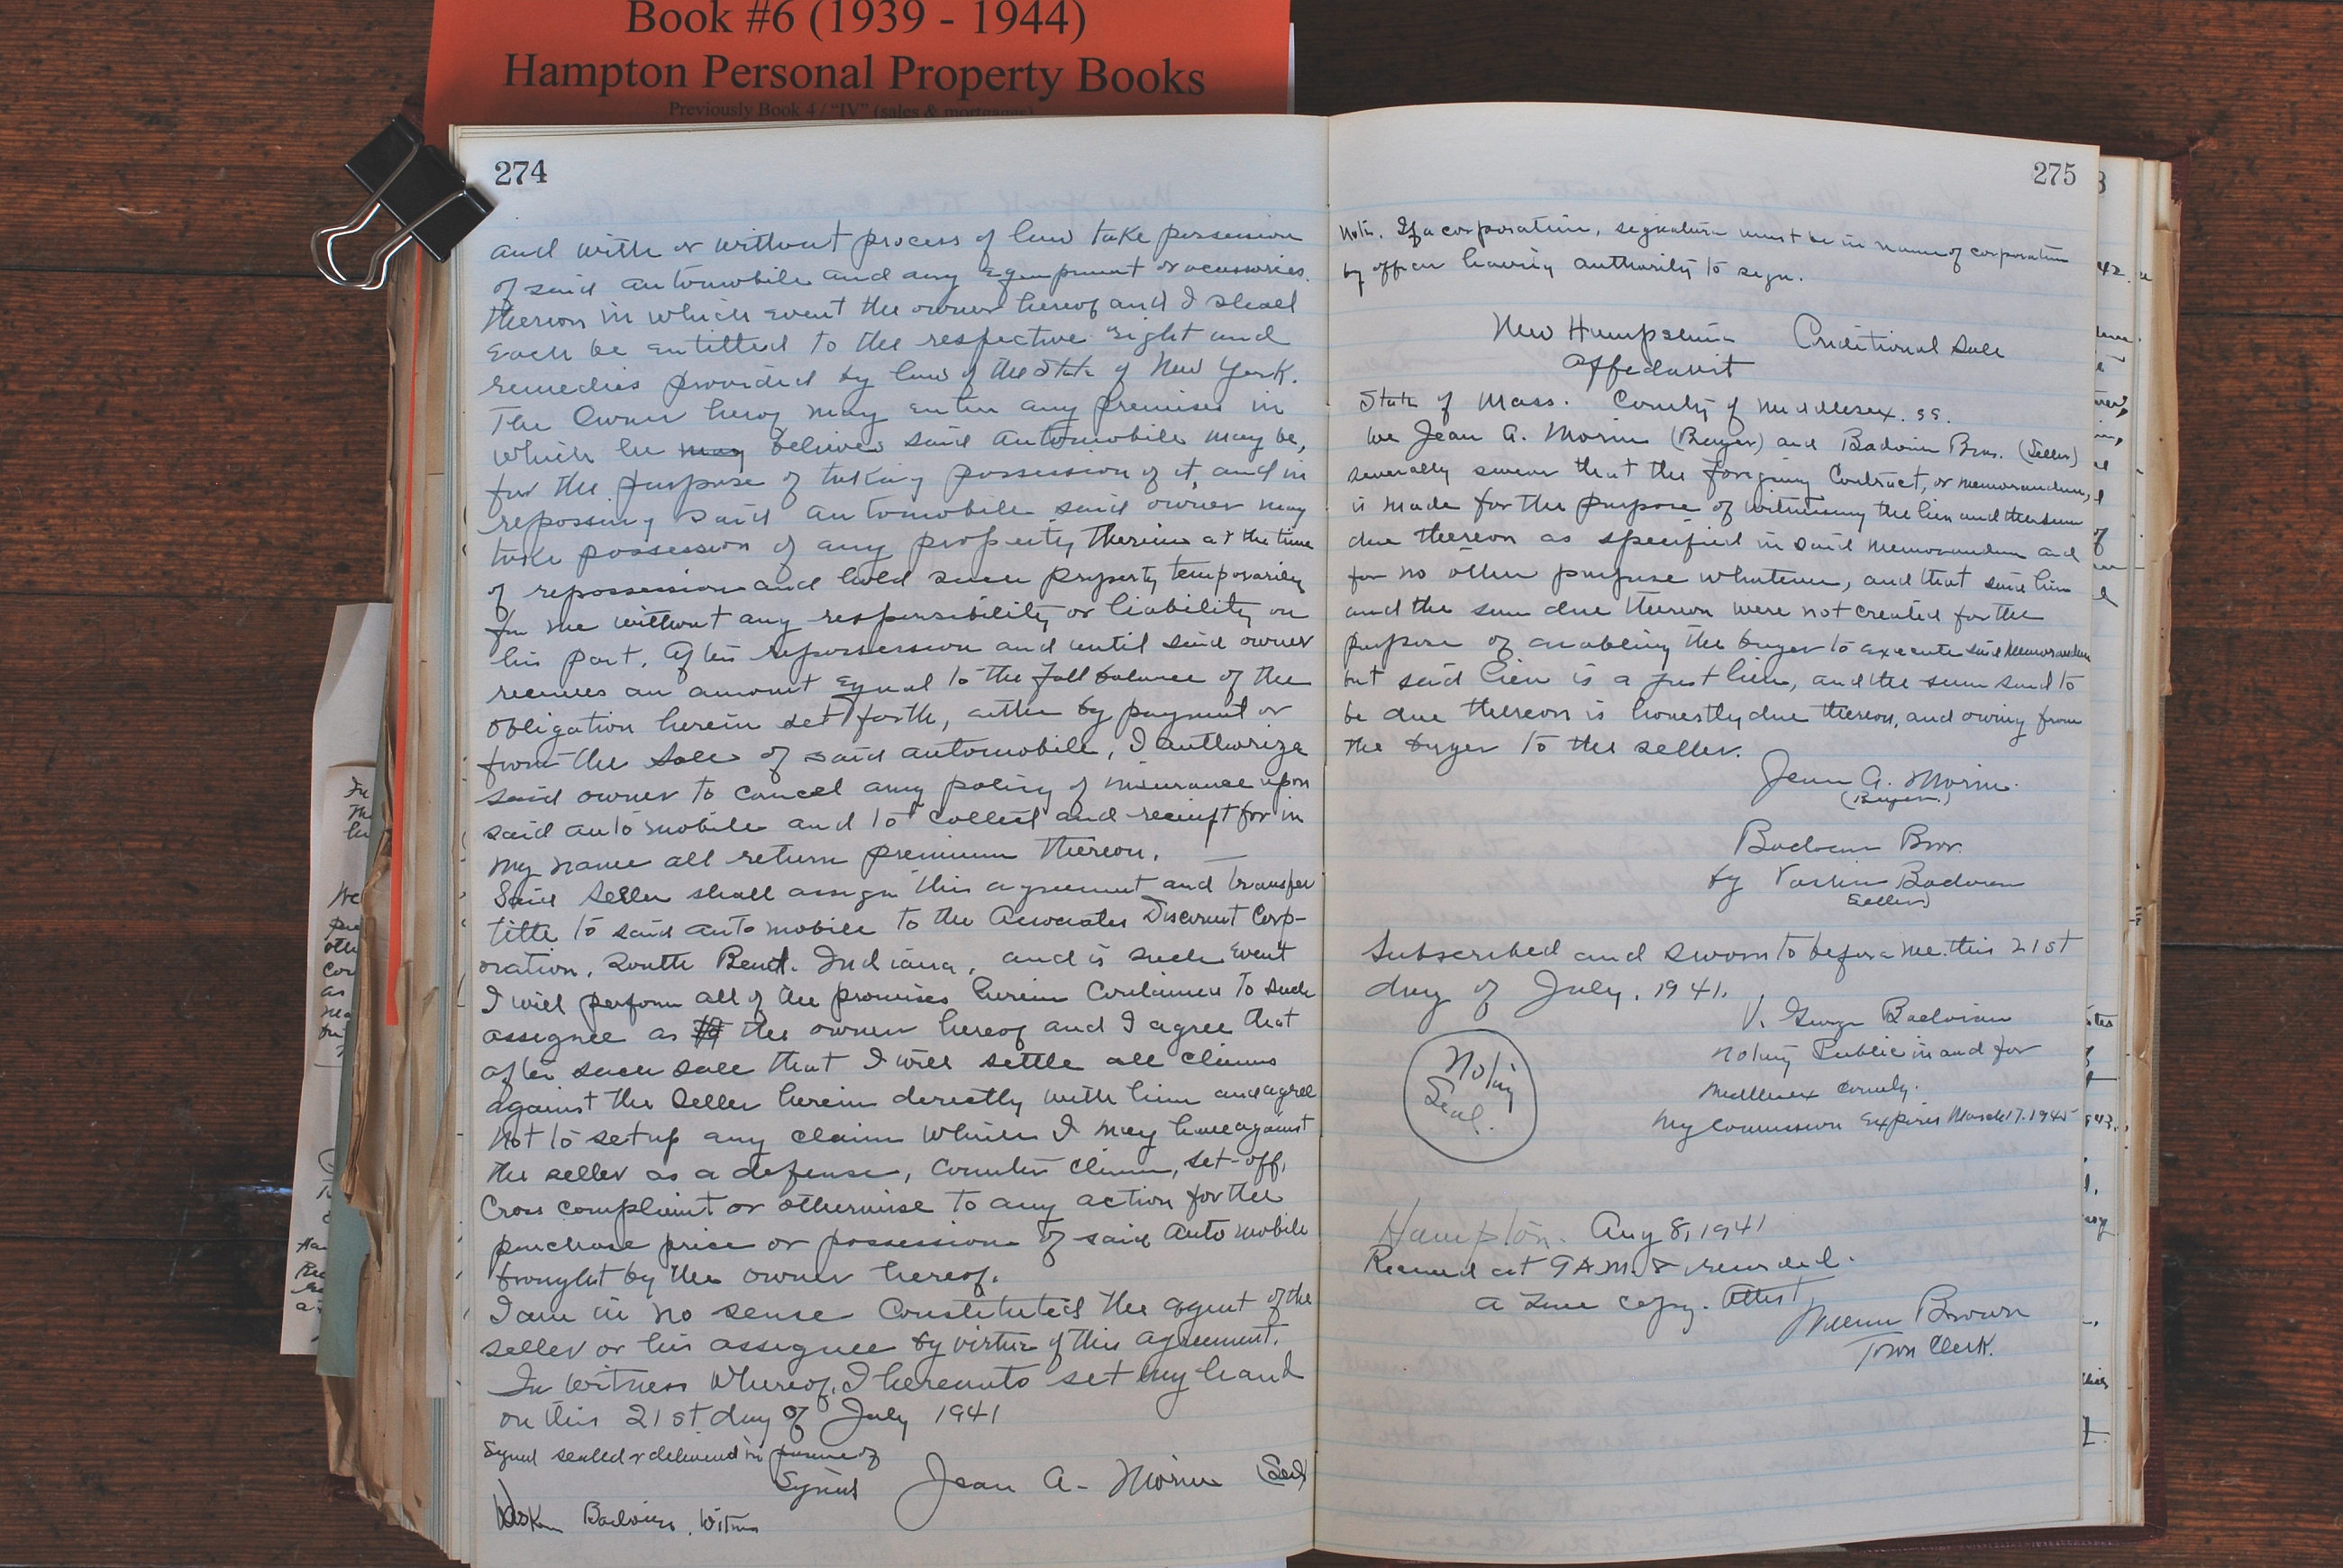 Book #6 (1939 - 1944)
Hampton Personal Property Books
Previously Book 4 / "IV" (sales & mortgages)
274
and with or without process of law take possession
of said automobile and any equipment or accessories
thereon in which event the owner hereof and I shall
Each be entitled to the respective right and
remedies provided by law of the State of New York.
The Owner hereof may enter any premises in
which he may believes said automobile may be,
for the purpose of taking possession of it, and in
repossing said automobile said owner may
take possession of any property therein at the time
of repossession and hold such property temporarily
for me without any responsibility or liability on
his part. After repossession and until said owner
receives an amount equal to the full balance of the
obligation herein set forth, either by payment or
from the sale of said automobile, I authorize
said owner to cancel any policy of insurance upon
said automobile and to collect and receipt for in
my name all return premium thereon.
Said Seller shall assign this agreement and transfer
title to said automobile to the Associates Discount Corp-
oration, South Bend, Indiana, and is such event
I will perform all of the promises herein contained to such
assignee as the owner hereof and I agree that
after such sale that I will settle all claims
against the Seller herein directly with him and agree
not to set up any claim which I may have against
the seller as a defense, counter claim, set-off,
Cross complaint or otherwise to any action for the
purchase price or possession of said Automobile
brought by the owner hereof.
I am in no sense Constituted the agent of the
seller or his assignee by virtue of this agreement.
In Witness Whereof, I hereunto set my hand
on this 21st day of July 1941
Signed sealed & delivered in presence of
Signed Jean A. Morin (Seal)
Badoian, Witness
275
Note. If a corporation, signature must be in name of corporation
by officer having authority to sign.
New Hampshire Conditional Sale
Affidavit
State of Mass. County of Middlesex. ss.
We Jean A. Morin (Buyer) and Badoian Bros. (Seller)
severally swear that the foregoing Contract, or memorandum,
is made for the purpose of witnessing the lien and the sum
due thereon as specified in said memorandum and
for no other purpose whatever, and that said lien
and the sum due thereon were not created for the
purpose of enabling the buyer to execute said Memorandum
but said lien is a just lien, and the sum said to
be due thereon is honestly due thereon, and owing from
the buyer to the seller.
Jean A. Morin.
(Buyer)
Badoian Bros.
by Badoian
(Seller)
Subscribed and sworn to before me this 21st
day of July, 1941.
V. George Badoian
Notary Public in and for
Middlesex County.
My Commission Expires March 17, 1945
Notary
Seal.
Hampton. Aug 8, 1941
Received at 9 A.M. & recorded.
a true copy. Attest,
Brown
Town Clerk.